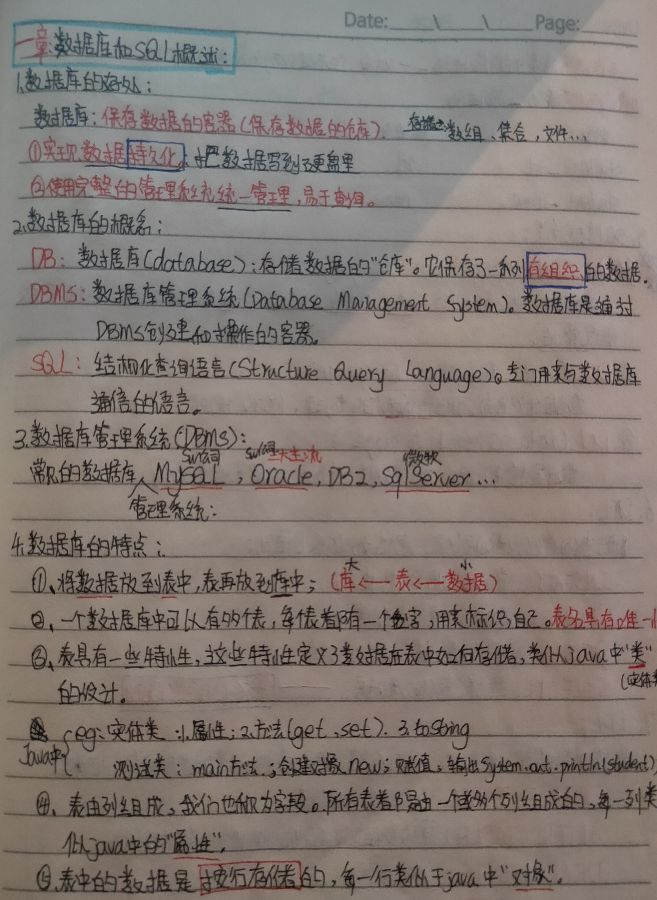 Date: \ \ Page:
一章:数据库和SQL概述:
1.数据库的好处:
数据库:保存数据的容器(保存数据的仓库). 存储: 数组、集合,文件...
①实现数据持久化,把数据写到硬盘里
②使用完整的管理系统统一管理,易于查询。
2.数据库的概念:
DB:数据库(database):存储数据的"仓库"。它保存了一系列有组织的数据.
DBMS:数据库管理系统(Database Management System)。数据库是通过
DBMS创建和操作的容器。
SQL:结构化查询语言(Structure Query Language)。专门用来与数据库
通信的语言。
3.数据库管理系统(DBMS):
sun公司 sun公司 三大主流 微软
常见的数据库 MySQL,Oracle,DB2,SqlServer...
管理系统:
4.数据库的特点:
①、将数据放到表中,表再放到库中;(库←表←数据) 大 小
②、一个数据库中可以有多个表,每个表都有一个名字,用来标识自己。表名具有唯一
③、表具有一些特性,这些特性定义了数据在表中如何存储,类似java中"类"
的设计。 (实体类
java中 eg:实体类:1.属性;2.方法(get,set).3.toString
测试类:main方法;创建对象new;赋值,输出System.out.println(student)
④、表由列组成,我们也称为字段。所有表都是由一个或多个列组成的,每一列类
似java中的"属性".
⑤、表中的数据是按行存储的,每一行类似于java中"对象"。